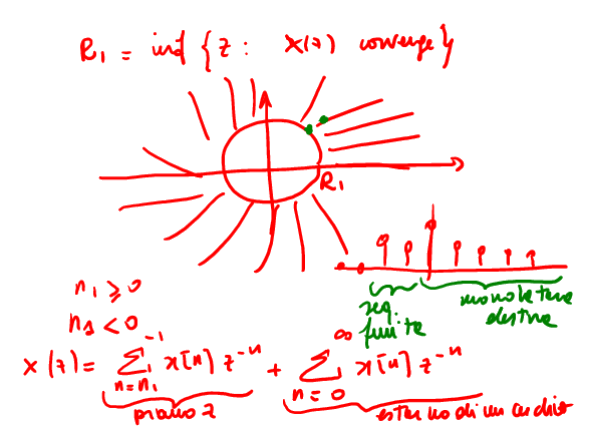 R₁ = inf { z : X(z) converge }
R₁
n₁ ≥ 0
n₁ < 0
seq. finita
monolatera destra
X(z) = ∑_{n=n₁}^{-1} x[n] z^{-n} + ∑_{n=0}^{∞} x[n] z^{-n}
piano z
esterno di un cerchio